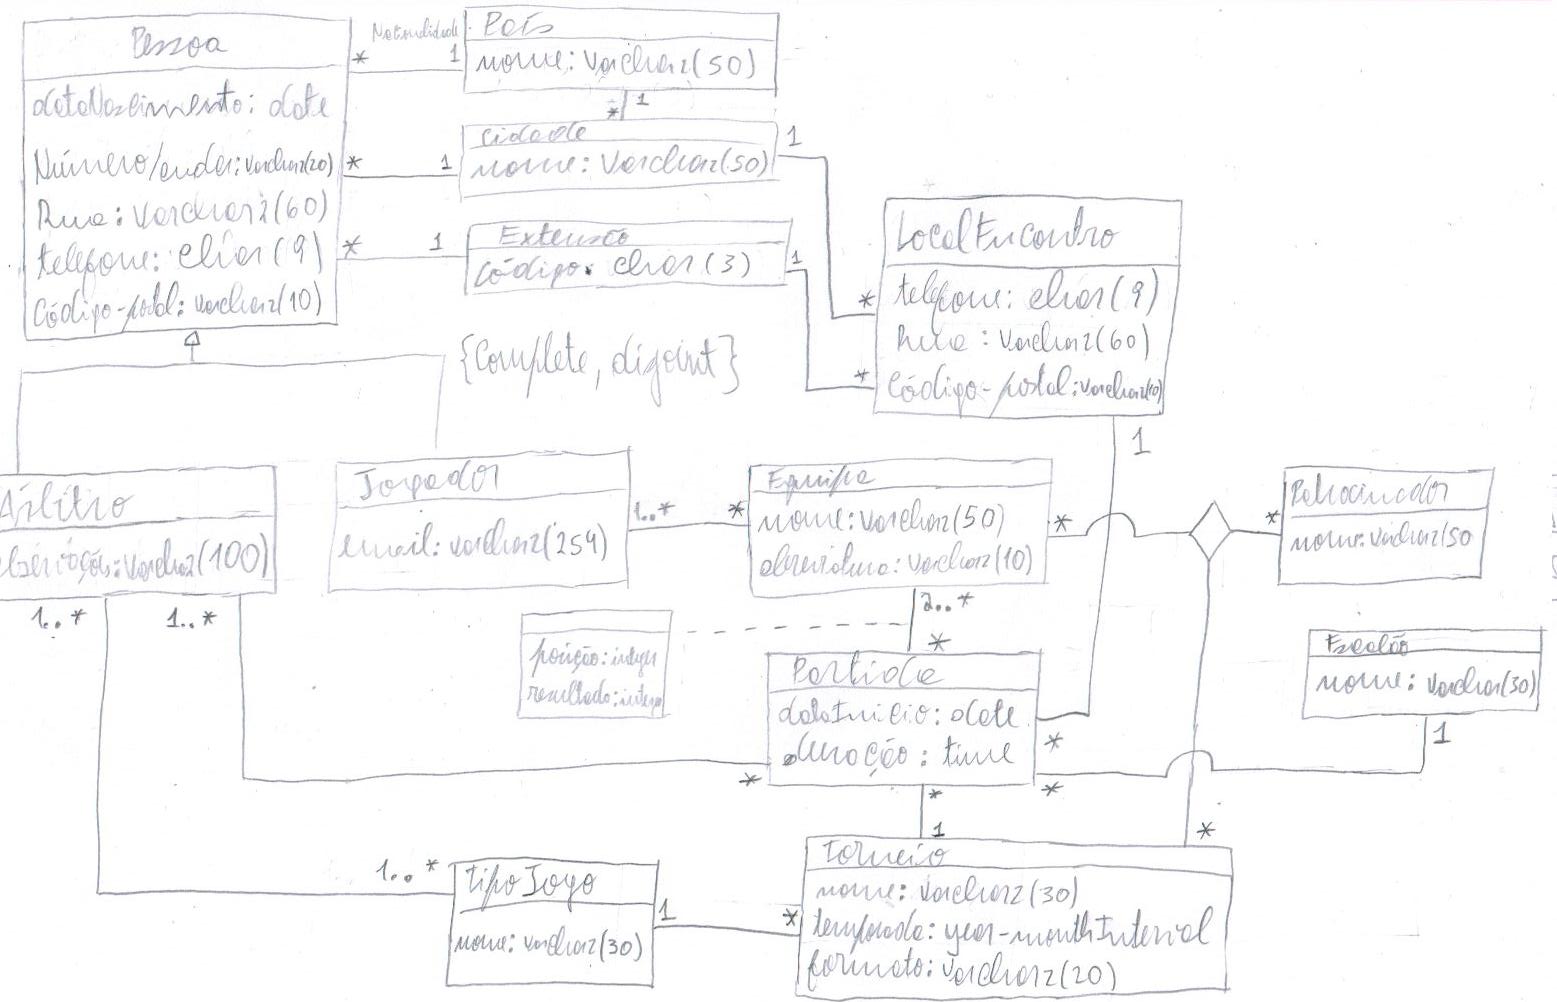 Pessoa
dataNascimento: date
Número/andar: varchar(20)
Rua: varchar2(60)
telefone: char(9)
Código-postal: varchar2(10)
Nacionalidade
*
1
País
nome: varchar2(50)
*
1
Cidade
nome: varchar2(50)
*
1
1
Extensão
código: char(3)
*
1
1
{Complete, disjoint}
LocalEncontro
telefone: char(9)
Rua: varchar2(60)
Código-postal: varchar2(10)
*
*
1
Árbitro
varchar2(100)
1..*
1..*
Jogador
email: varchar2(254)
1..*
*
Equipa
nome: varchar2(50)
abreviatura: varchar2(10)
*
2..*
*
Patrocinador
nome: varchar(50
*
posição: integer
resultado: integer
Partida
dataInicio: date
duração: time
*
*
*
*
Escalão
nome: varchar(30)
1
TipoJogo
nome: varchar2(30)
1..*
1
*
1
Torneio
nome: varchar2(30)
temporada: year-monthInterval
formato: varchar2(20)
*